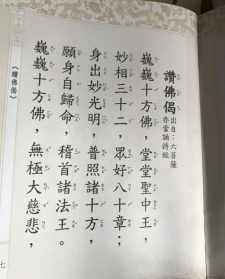 讚佛偈
出自：六菩薩
亦當誦持經
巍巍十方佛，堂堂聖中王，
妙相三十二，眾好八十章；
身出妙光明，普照諸十方，
願身自歸命，稽首諸法王。
巍巍十方佛，無極大慈悲，
《讚佛偈》
七